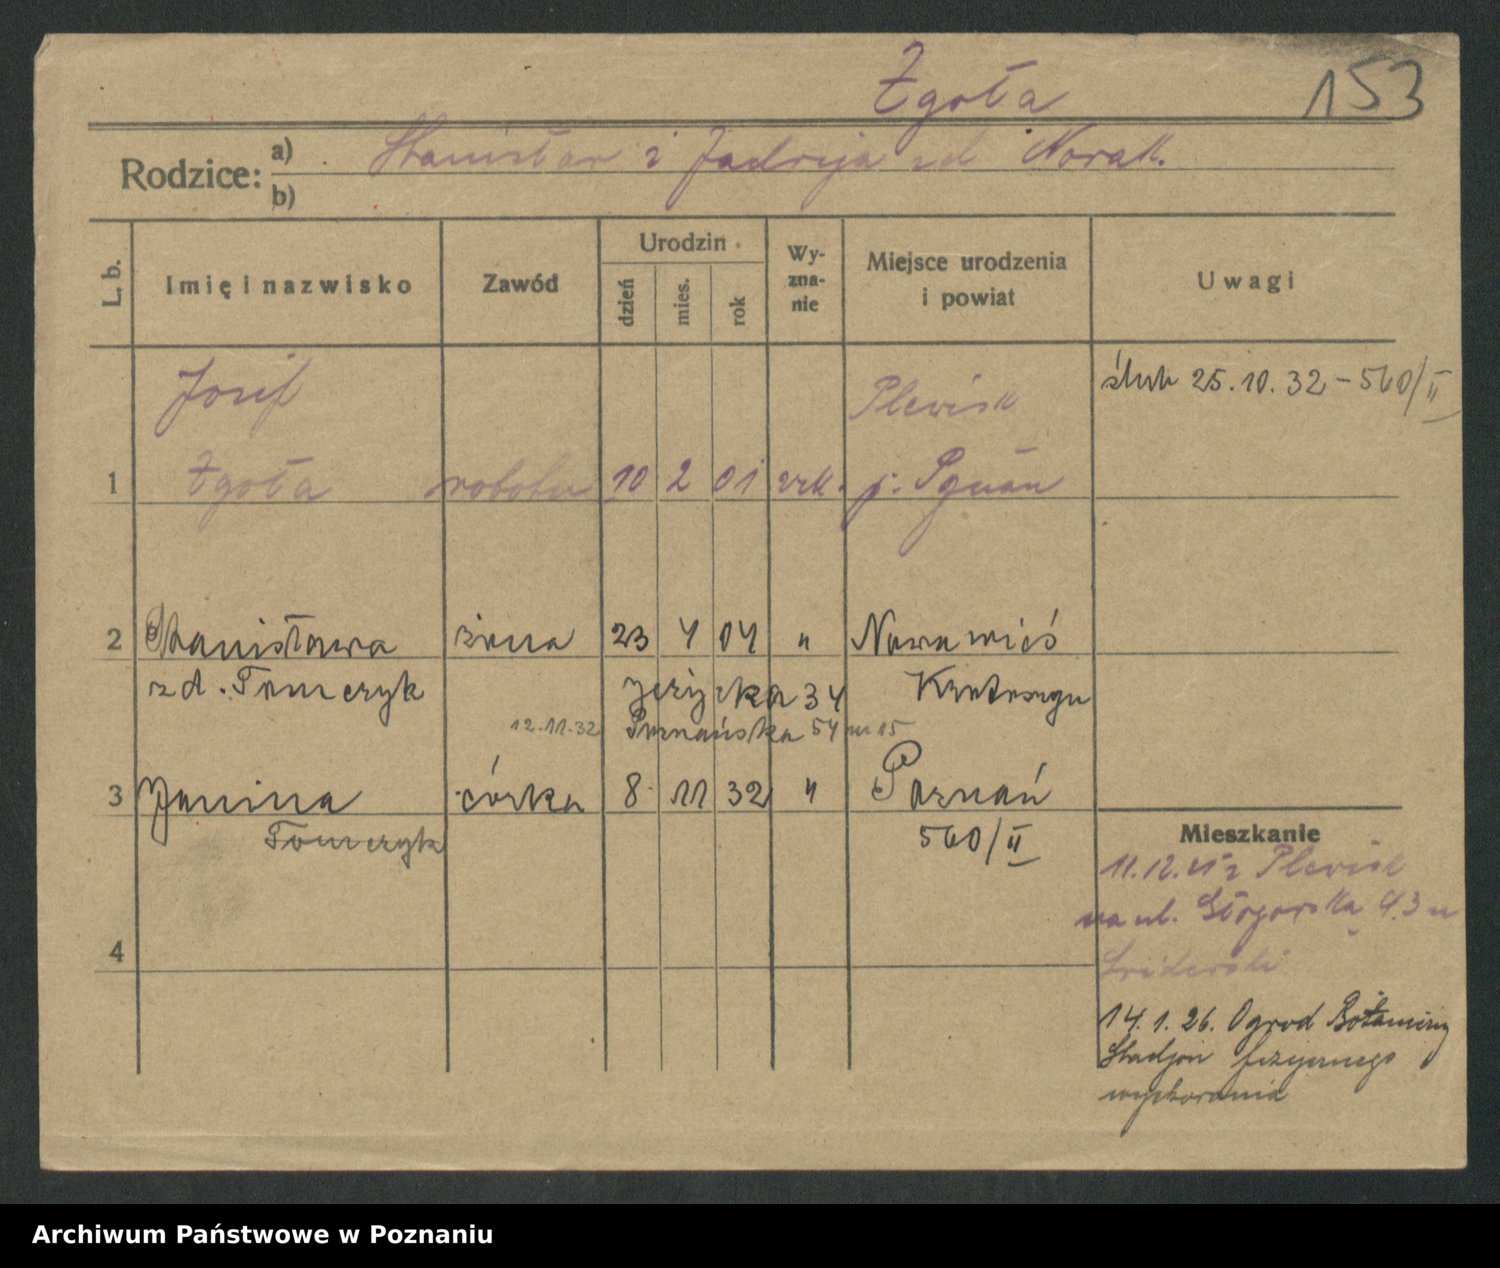 Zgoła
153
Rodzice: a) Stanisław i Jadwiga zd. Nowak.
b)
L. b.
Imię i nazwisko
Zawód
Urodzin
dzień
mies.
rok
Wy-
zna-
nie
Miejsce urodzenia
i powiat
Uwagi
ślub 25.10.32 – 560/II
Josif
Plewisk
1 Zgoła robotn 10 2 01 rzk. p. Pznań
2 Stanisława żona 23 4 04 " Nowawieś
zd. Tomczyk
Jeżycka 34
12.11.32 Poznańska 54 m 15
3 Janina córka 8 11 32 " Poznań
Tomczyk
560/II
Mieszkanie
Plewisk
na ul.
4
14.1.26. Ogrod Botaniczny
Stadjon fizycznego
wychowania
Archiwum Państwowe w Poznaniu